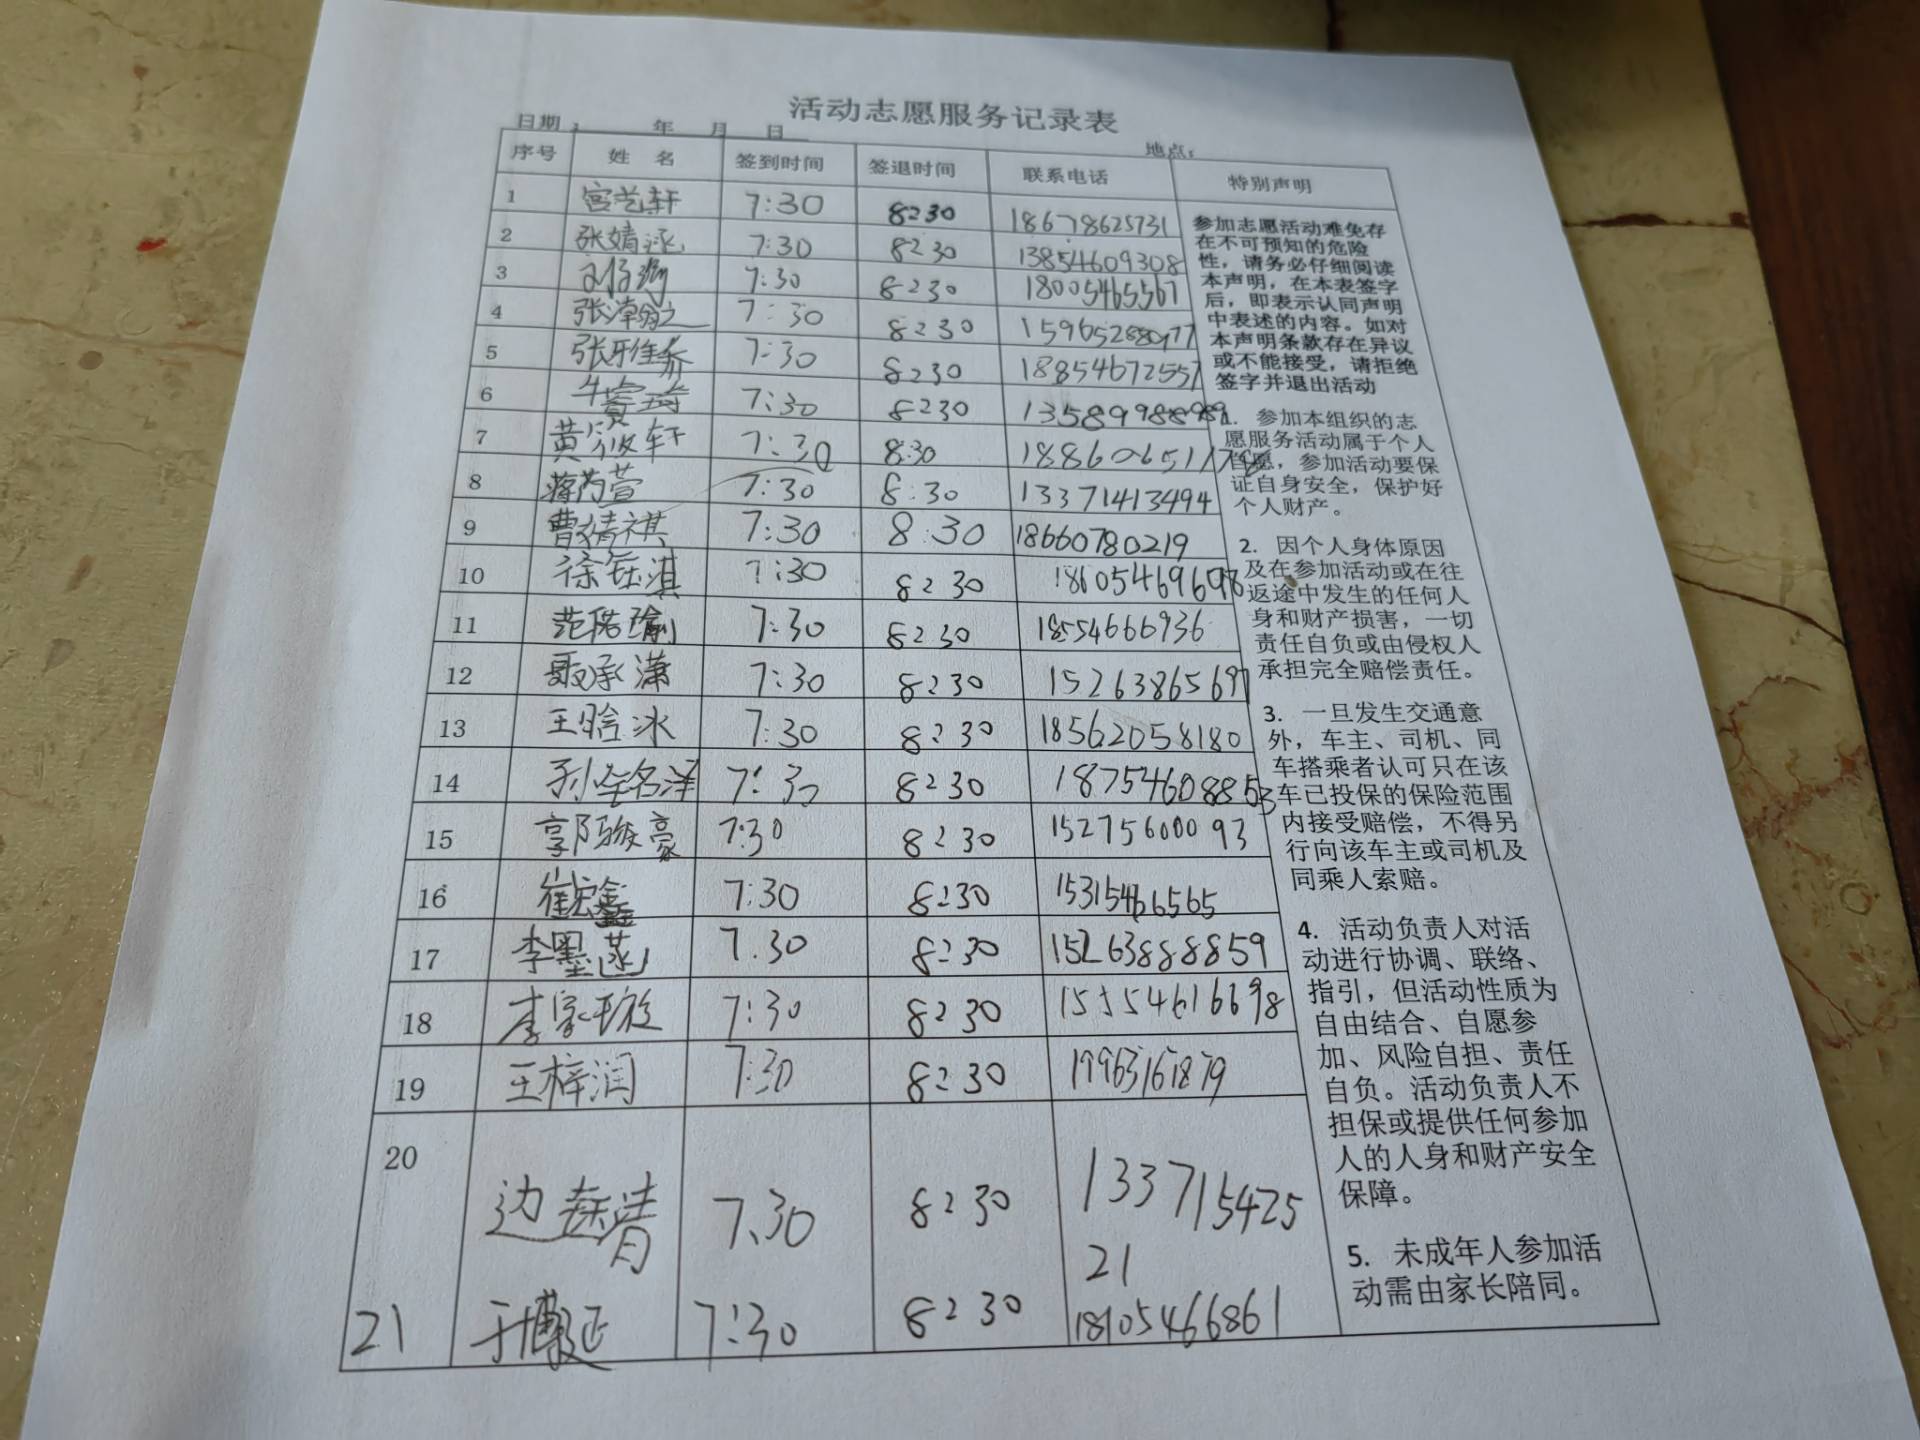 活动志愿服务记录表
日期: 年 月 日 地点:
序号 姓 名 签到时间 签退时间 联系电话 特别声明
1 宫艺轩 7:30 8:30 18678625731
2 张婧泳 7:30 8:30 13854609308
3 7:30 8:30 18005465567
4 张瀚之 7:30 8:30 15965288077
5 张 7:30 8:30 18854672557
6 牛 7:30 8:30
7 黄 轩 7:30 8:30
8 蒋芮萱 7:30 8:30 13371413494
9 曹婧祺 7:30 8:30 18660780219
10 徐钰淇 7:30 8:30
11 范 瑜 7:30 8:30 18554666936
12 承潇 7:30 8:30 15263865697
13 王晗冰 7:30 8:30 18562058180
14 7:30 8:30 18754608853
15 郭骏豪 7:30 8:30 15275600093
16 崔宏鑫 7:30 8:30 15315466565
17 李墨涵 7:30 8:30 15263888859
18 李 7:30 8:30 15554616698
19 王梓润 7:30 8:30 19963161879
20 边 7:30 8:30 133715425
21
21 于 延 7:30 8:30 18105466861
参加志愿活动难免存
在不可预知的危险
性，请务必仔细阅读
本声明，在本表签字
后，即表示认同声明
中表述的内容。如对
本声明条款存在异议
或不能接受，请拒绝
签字并退出活动
1. 参加本组织的志
愿服务活动属于个人
自愿，参加活动要保
证自身安全，保护好
个人财产。
2. 因个人身体原因
及在参加活动或在往
返途中发生的任何人
身和财产损害，一切
责任自负或由侵权人
承担完全赔偿责任。
3. 一旦发生交通意
外，车主、司机、同
车搭乘者认可只在该
车已投保的保险范围
内接受赔偿，不得另
行向该车主或司机及
同乘人索赔。
4. 活动负责人对活
动进行协调、联络、
指引，但活动性质为
自由结合、自愿参
加、风险自担、责任
自负。活动负责人不
担保或提供任何参加
人的人身和财产安全
保障。
5. 未成年人参加活
动需由家长陪同。